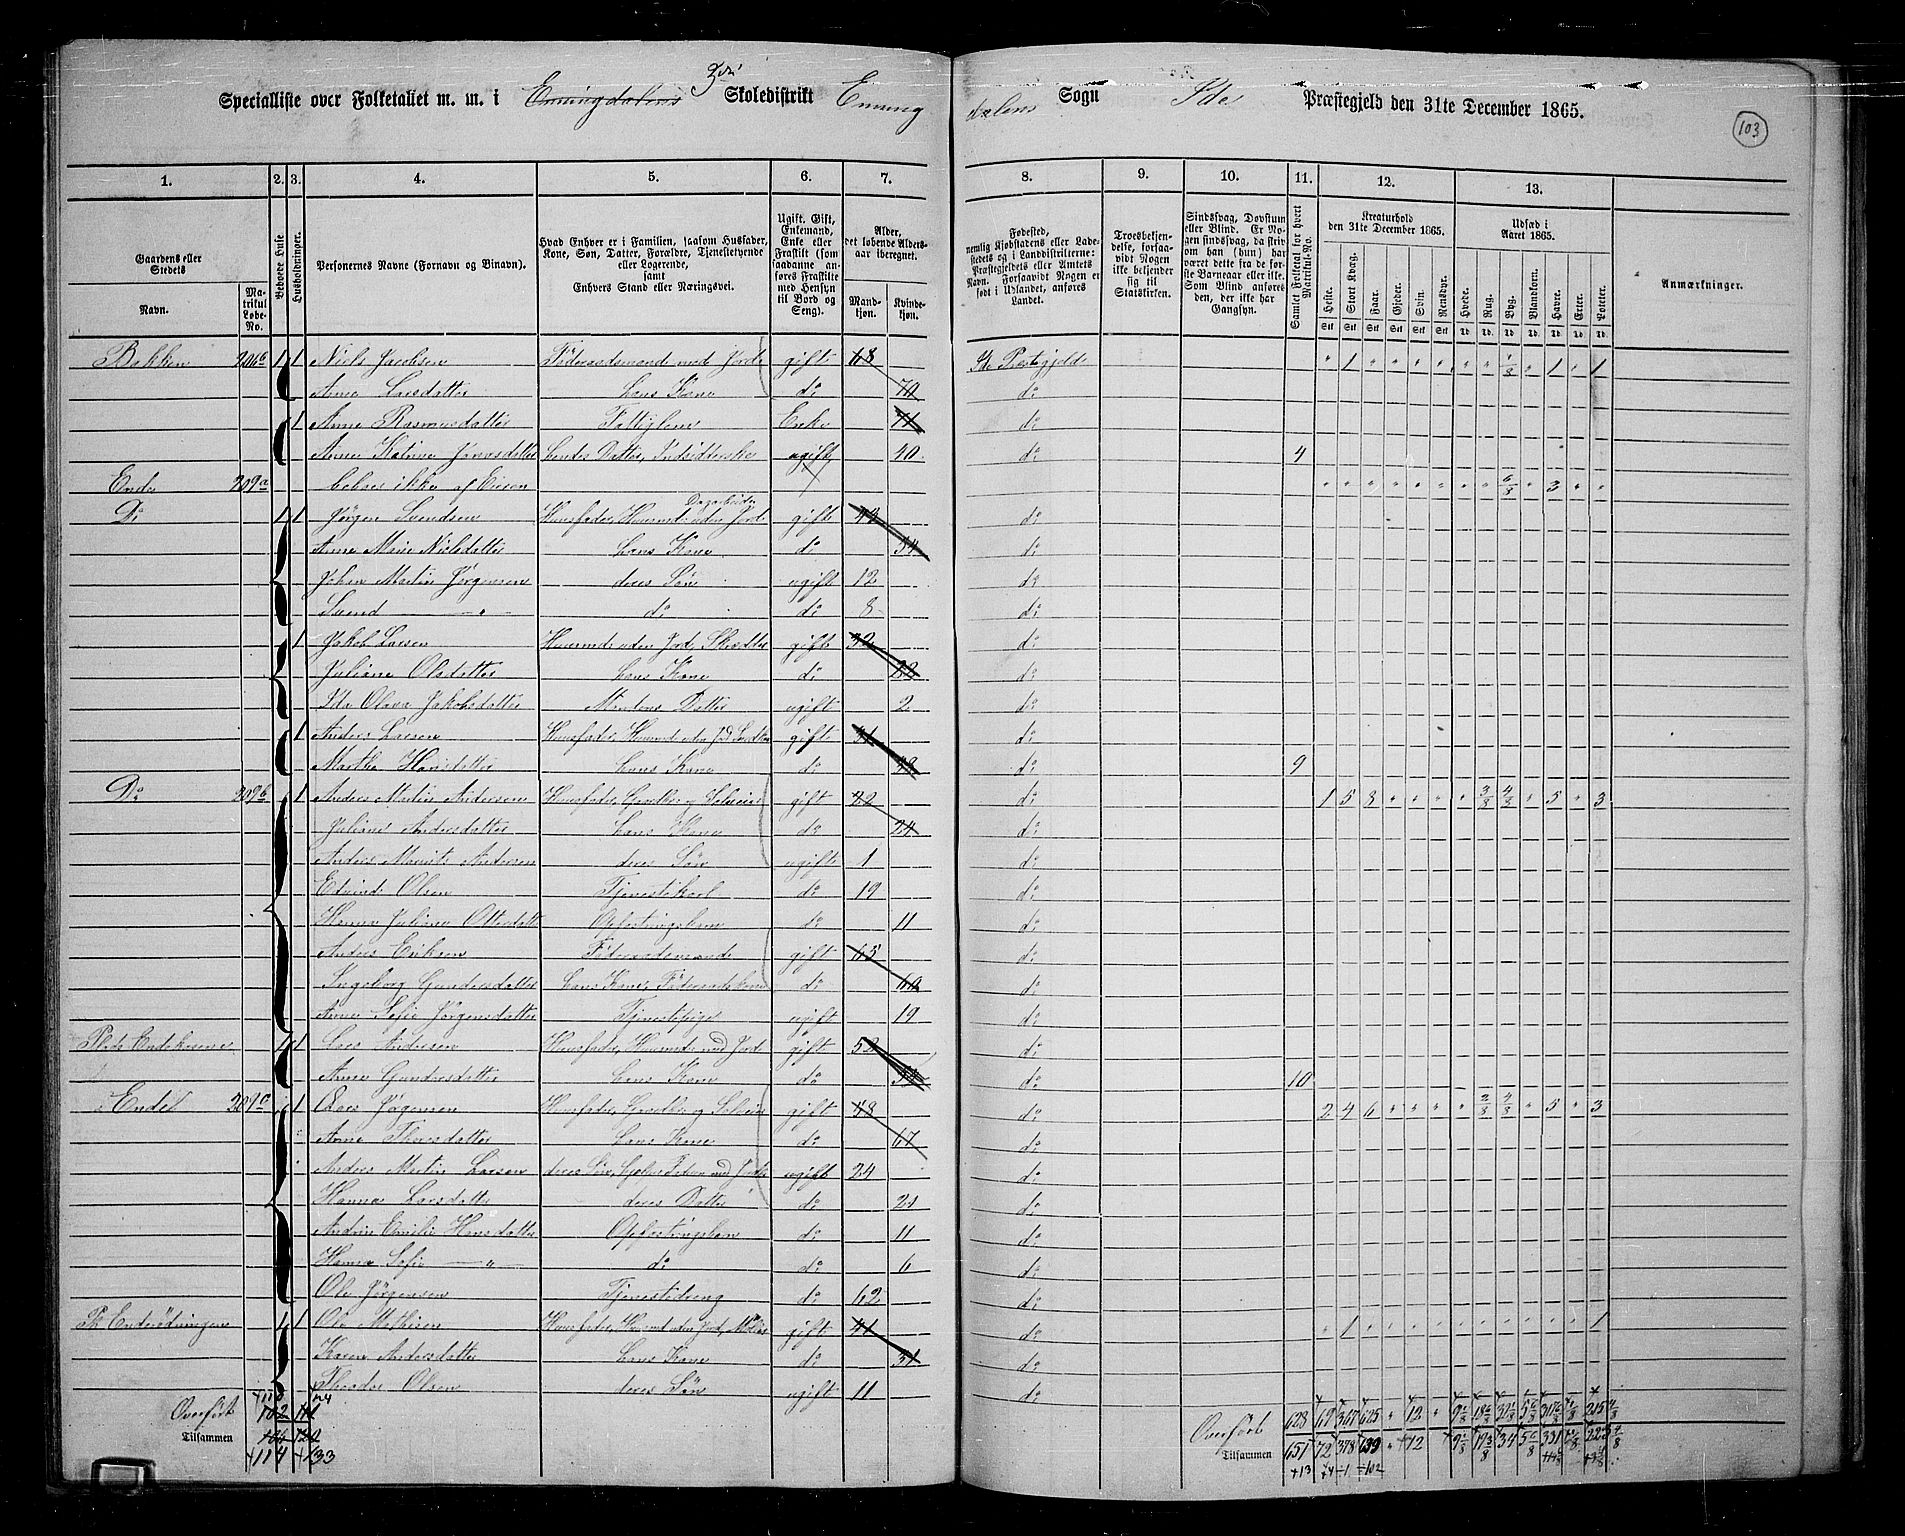 Specialliste over Folketallet m. m. i Enningdalens 3die Skoledistrikt Enning
dalens Sogn Ide Præstegjeld den 31te December 1865.
103
1. 2. 3. 4. 5. 6. 7. 8. 9. 10. 11. 12. 13.
Gaardens eller Stedets
Navn.
Matrikul Løbe-No.
Beboede Huse.
Husholdninger.
Personernes Navne (Fornavn og Binavn).
Hvad Enhver er i Familien, saasom Husfader, Kone, Søn, Datter, Forældre, Tjenestetyende eller Logerende, samt Enhvers Stand eller Næringsvei.
Ugift, Gift, Enkemand, Enke eller Fraskilt (som saadanne anføres Fraskilte med Hensyn til Bord og Seng).
Alder, det løbende Aldersaar iberegnet.
Mandkjøn. Kvindekjøn.
Fødested, nemlig Kjøbstadens eller Ladestedets og i Landdistrikterne: Præstegjeldets eller Amtets Navn. Forsaavidt Nogen er født i Udlandet, anføres Landet.
Troesbekjendelse, forsaavidt Nogen ikke bekjender sig til Statskirken.
Sindssvag, Døvstum eller Blind. Er Nogen sindssvag, da skriv om han (hun) har været dette fra de første Barneaar eller ikke. Som Blind anføres den, der ikke har Gangsyn.
Samlet Folketal for hvert Matrikul-No.
Kreaturhold den 31te December 1865.
Heste. Stort Kvæg. Faar. Gjeder. Svin. Rensdyr.
Udsæd i Aaret 1865.
Hvede. Rug. Byg. Blandkorn. Havre. Erter. Poteter.
Anmærkninger.
Bakken 206b 1 1 Niels Jacobsen Föderaadsmand med Jord gift 68 Ide Prestegjeld " 1 " " " " " " 1/8 " 1 " 1
Anne Larsdatter hans Kone do 70 do
1 Anne Rasmusdatter Fattiglem Enke 71 do
Anne Katrine Jonasdatter hendes Datter, Indsidderske ugift 40 do 4
Ende 209a beboes ikke af Eieren " " " " " " " " 6/8 " 3 " "
Do 1 1 Jørgen Svendsen Husfader, Huusmd uden Jord Dagarbeider gift do
Anne Marie Nielsdatter hans Kone do 54 do
Johan Martin Jørgensen deres Søn ugift 12 do
Svend — " — do do 8 do
1 Jakob Larsen Huusmd uden Jord gift 32 do
Juliane Olsdatter hans Kone do do
Ida Olava Jakobsdatter Mandens Datter ugift 2 do
1 Anders Larsen Husfader, Huusmd uden Jd gift do
Martha Hansdatter hans Kone do do 9
Do 209b 1 Anders Martin Andersen Husfader, Gaardbr og Selveier gift 22 do 1 5 8 " " " " 3/8 4/8 " 5 " 3
Juliane Andersdatter hans Kone do 24 do
Anders Mauritz Andersen deres Søn ugift 1 do
Edvind Olsen Tjenestekarl do 19 do
Hanna Juliane Ottersdatter Opfostringsbarn do 11 do
Anders Eriksen Föderaadsmand gift 65 do
Ingeborg Gundersdatter hans Kone, Föderaadskone do 60 do
Anne Sofie Jørgensdatter Tjenestepige ugift 19 do
1 1 Lars Andersen Husfader, Huusmd med Jord gift 52 do
Anne Gundersdatter hans Kone do do 10
Ende 209c 1 Lars Jørgensen Husfader, Gaardbr og Selveier gift 58 do 2 4 6 " " " " 2/8 4/8 " 5 " 3
Anne Thoresdatter hans Kone do 67 do
Anders Martin Larsen deres Søn, ugift 24 do
Hanna Larsdatter deres Datter do 21 do
Andrine Emilie Hansdatter Opfostringsbarn do 11 do
Hanna Sofie — " — do do 6 do
Ole Jørgensen Tjenestedreng do 62 do
Pl. Enderödningen 1 1 Ole Mathisen Husfader, Huusmd uden Jord, gift 41 do " 1 " " " " " " " " " " 1
Karen Andersdatter hans Kone do 51 do
Theodor Olsen deres Søn ugift 11 do
Overført 102
Tilsammen
+114 +133
Overført 628 69 367 625 " 12 "
Tilsammen 651 72 378 639 " 12 "
+13 +102